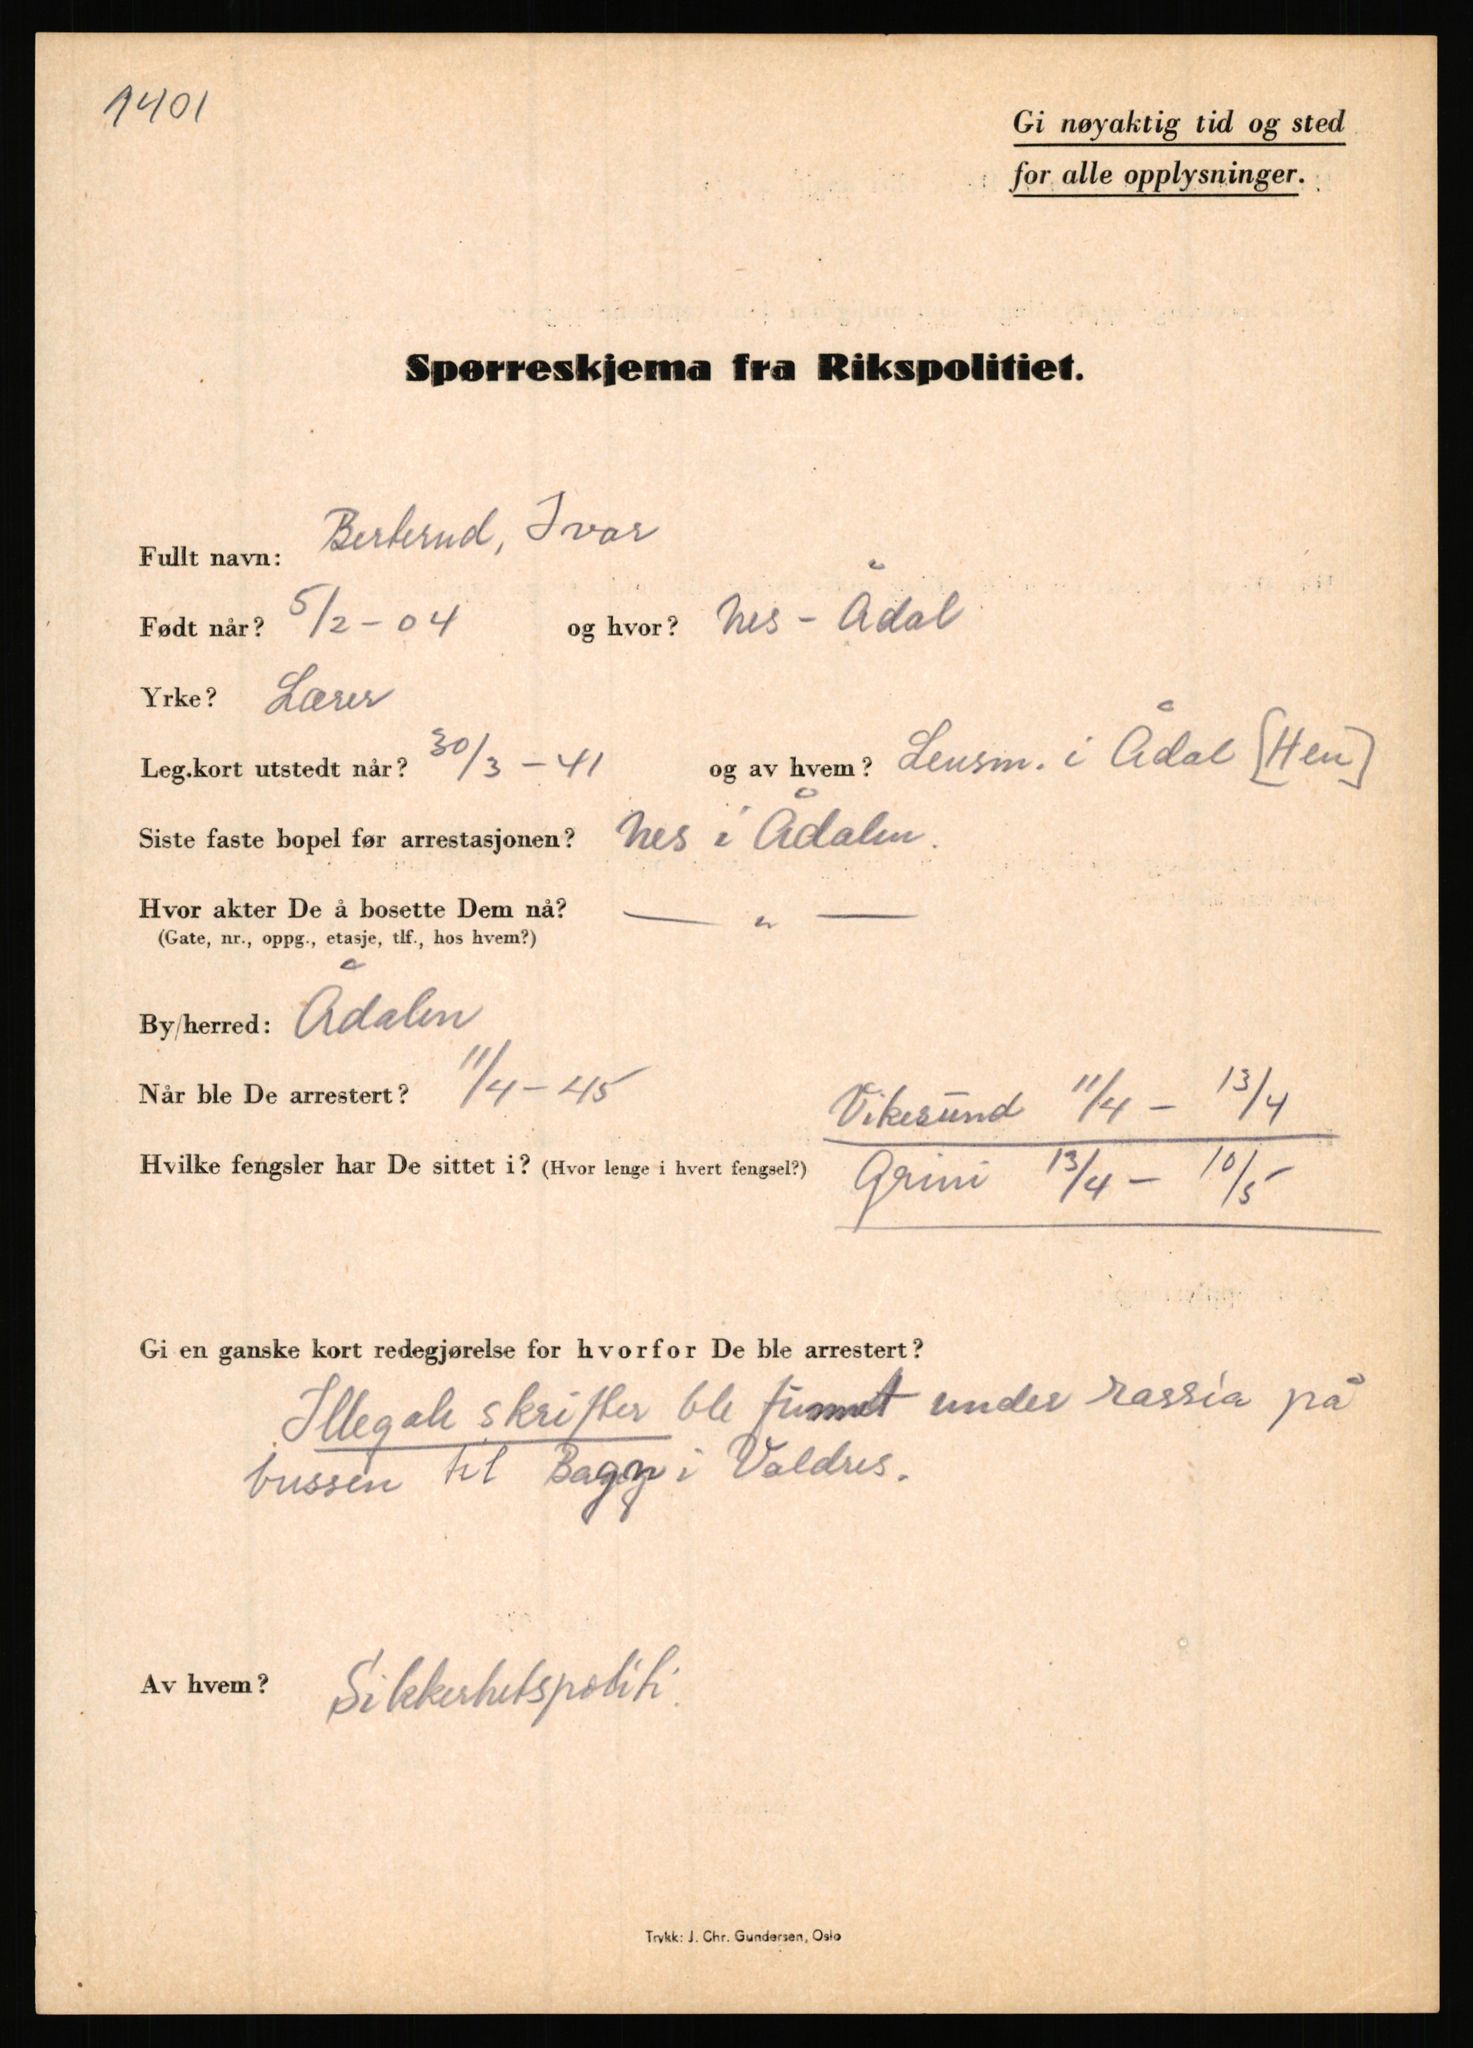 1401
Gi nøyaktig tid og sted
for alle opplysninger.
Spørreskjema fra Rikspolitiet.
Fullt navn: Berterud, Ivar
Født når? 5/2 - 04 og hvor? Nes - Ådal
Yrke? Lærer
Leg.kort utstedt når? 30/3 - 41 og av hvem? Lensm. i Ådal [Hen]
Siste faste bopel før arrestasjonen? Nes i Ådalen.
Hvor akter De å bosette Dem nå? — " —
(Gate, nr., oppg., etasje, tlf., hos hvem?)
By/herred: Ådalen
Når ble De arrestert? 11/4 - 45
Vikesund 11/4 - 13/4
Hvilke fengsler har De sittet i? (Hvor lenge i hvert fengsel?) Grini 13/4 - 10/5
Gi en ganske kort redegjørelse for hvorfor De ble arrestert?
Illegale skrifter ble funnet under rassia på
bussen til Bagn i Valdres.
Av hvem? Sikkerhetspoliti.
Trykk: J. Chr. Gundersen, Oslo